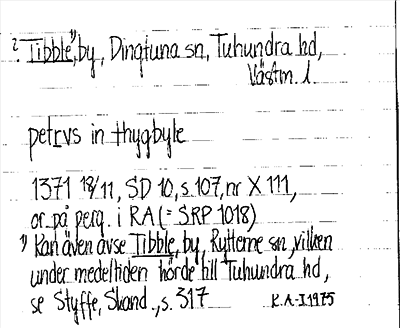 ? Tibble¹⁾, by, Dingtuna sn, Tuhundra hd,
Västm. l.
petrvs in thygbyle
1371 18/11, SD 10, s. 107, nr X 111,
or. på perg. i RA (= SRP 1018)
¹⁾ Kan även avse Tibble, by, Rytterne sn, vilken
under medeltiden hörde till Tuhundra hd,
se Styffe, Skand., s. 317
K.A-I 1975